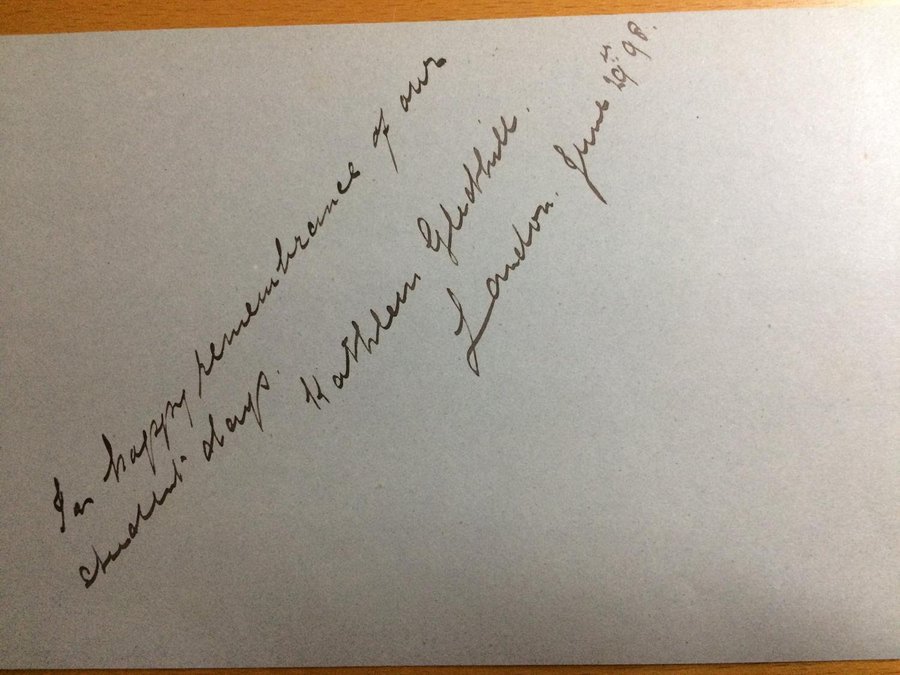 In happy remembrance of our
student days.
Kathleen Gledhill.
London. June 29th 98.